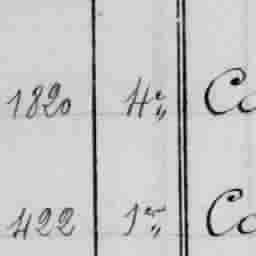 1820 4e„ Co
422 1er„ Co